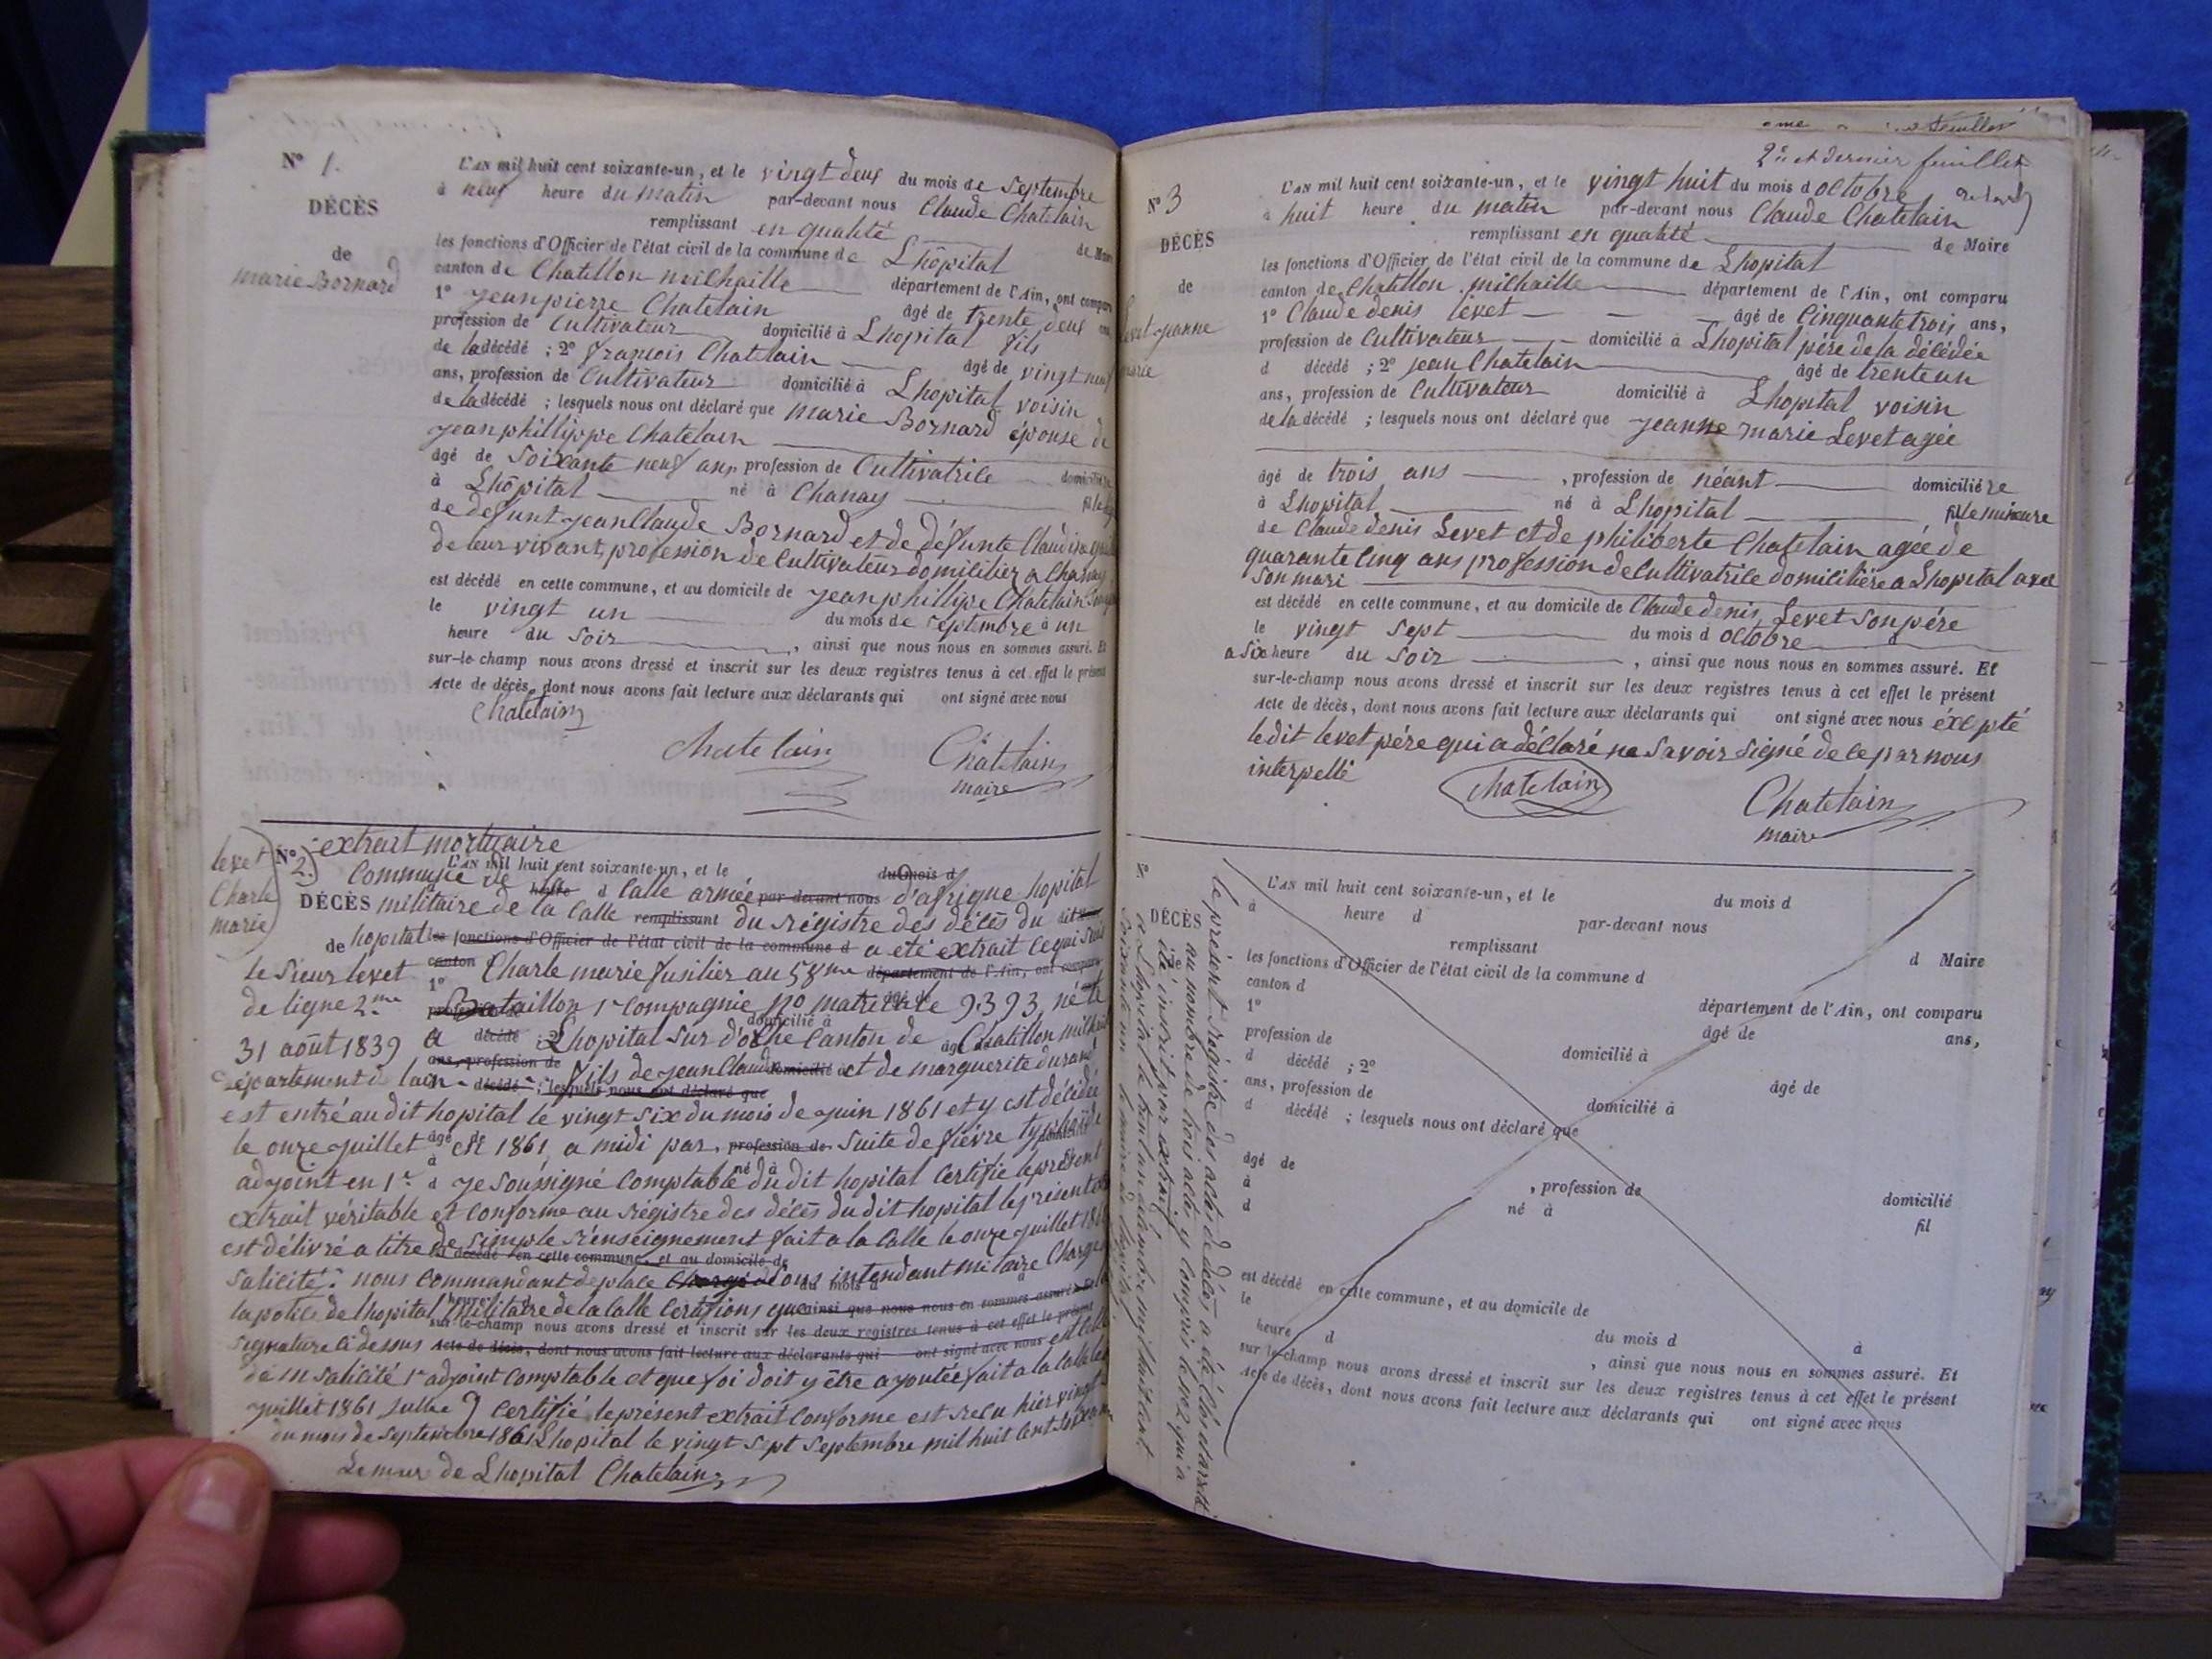 N° 1.
DÉCÈS
de
marie Bornard
L'AN mil huit cent soixante-un, et le vingt deux du mois de Septembre
à neuf heure du matin par-devant nous Claude Chatelain
remplissant en qualité de Maire
les fonctions d'Officier de l'état civil de la commune de Lhôpital
canton de Chatillon milhaille département de l'Ain, ont comparu
1° Jean pierre Chatelain âgé de trente deux ans
profession de Cultivateur domicilié à Lhopital fils
de la décédé ; 2° françois Chatelain âgé de vingt neuf
ans, profession de Cultivateur domicilié à Lhopital voisin
de la décédé ; lesquels nous ont déclaré que marie Bornard épouse de
Jean phillippe Chatelain
âgé de Soixante neuf ans, profession de Cultivatrice domicilière
à Lhôpital né à Chanay fille
de defunt Jean Claude Bornard et de défunte Claudine
de leur vivant, profession de Cultivateurs domicilier a Chanay
est décédé en cette commune, et au domicile de Jean phillipe Chatelain
le vingt un du mois de Septembre à un
heure du Soir, ainsi que nous nous en sommes assuré. Et
sur-le-champ nous avons dressé et inscrit sur les deux registres tenus à cet effet le présent
Acte de décès, dont nous avons fait lecture aux déclarants qui ont signé avec nous
Chatelain
Chatelain Chatelain
maire
levet Charle marie
N° 2.
extrait mortuaire
L'AN mil huit cent soixante-un, et le du mois d
Commune de la Calle armée par-devant nous d'afrique hopital
DÉCÈS militaire de la Calle remplissant du régistre des décès du dit
de hopital les fonctions d'Officier de l'état civil de la commune d a été extrait ce qui suit
le Sieur levet canton Charle marie fusilier au 58me département de l'Ain, ont comparu
de ligne 2me Bataillon 1r Compagnie no matricule 9393, né le
31 août 1839 a décédé Lhopital Sur d'oche Canton de Chatillon
département de lain fils de Jean Claude et de marguerite durand
décédé ; lesquels nous ont déclaré que
est entré au dit hopital le vingt Six du mois de Juin 1861 et y est décédé
le onze Juillet 1861 a midi par profession de Suite de fièvre typhoïde
adjoint en 1r Je Soussigné Comptable du dit hopital Certifie le présent
extrait véritable et Conforme au régistre des décès du dit hopital le présent
est délivré a titre de Simple rénseignement fait a la Calle le onze Juillet
est décédé en cette commune, et au domicile de
Salicité. nous Commandant de place Sous intendant militaire Chargé
la police de lhopital Militaire de la Calle Certifions que ainsi que nous nous en sommes assuré
sur le-champ nous avons dressé et inscrit sur les deux registres tenus à cet effet le présent
Signature Ci dessus Acte de décès, dont nous avons fait lecture aux déclarants qui ont signé avec nous est Celle
de m Salicité 1r adjoint Comptable et que foi doit y être ajoutée fait a la Calle
Juillet 1861 Certifié le présent extrait Conforme est reçu hier vingt
du mois de Septembre 1861 Lhopital le vingt Sept Septembre mil huit Cent
Le maire de Lhopital Chatelain
2me et dernier feuillet
N° 3
DÉCÈS
de
Levet Jeanne
marie
L'AN mil huit cent soixante-un, et le vingt huit du mois d octobre
à huit heure du matin par-devant nous Claude Chatelain
remplissant en qualité de Maire
les fonctions d'Officier de l'état civil de la commune de Lhopital
canton de Chatillon milhaille département de l'Ain, ont comparu
1° Claude denis levet âgé de Cinquante trois ans,
profession de Cultivateur domicilié à Lhopital père de la décédée
d décédé ; 2° Jean Chatelain âgé de trente un
ans, profession de Cultivateur domicilié à Lhopital voisin
de la décédé ; lesquels nous ont déclaré que Jeanne marie Levet agée
âgé de trois ans, profession de néant domicilière
à Lhopital né à Lhopital fille mineure
de Claude denis Levet et de philiberte Chatelain agée de
quarante Cinq ans profession de Cultivatrice domicilière a Lhopital avec
Son mari
est décédé en cette commune, et au domicile de Claude denis Levet Son père
le vingt Sept du mois d octobre
a Six heure du Soir, ainsi que nous nous en sommes assuré. Et
sur-le-champ nous avons dressé et inscrit sur les deux registres tenus à cet effet le présent
Acte de décès, dont nous avons fait lecture aux déclarants qui ont signé avec nous éxcepté
ledit levet père qui a déclaré ne Savoir Signé de ce par nous
interpellé
Chatelain Chatelain
maire
DÉCÈS
de
L'AN mil huit cent soixante-un, et le du mois d
à heure d par-devant nous
remplissant
les fonctions d'Officier de l'état civil de la commune d d Maire
canton d département de l'Ain, ont comparu
1° âgé de ans,
profession de domicilié à
d décédé ; 2° âgé de
ans, profession de domicilié à
d décédé ; lesquels nous ont déclaré que
âgé de , profession de domicilié
à né à fil
d
est décédé en cette commune, et au domicile de
le du mois d à
heure d , ainsi que nous nous en sommes assuré. Et
sur le-champ nous avons dressé et inscrit sur les deux registres tenus à cet effet le présent
Acte de décès, dont nous avons fait lecture aux déclarants qui ont signé avec nous
le présent régistre des actes de décès a été Clos et arrêté
au nombre de trois actes y Compris le no 2 qui a
été inscrit par extrait
a Lhopital le trente un décembre mil huit Cent
Soixante un le maire de Lhopital